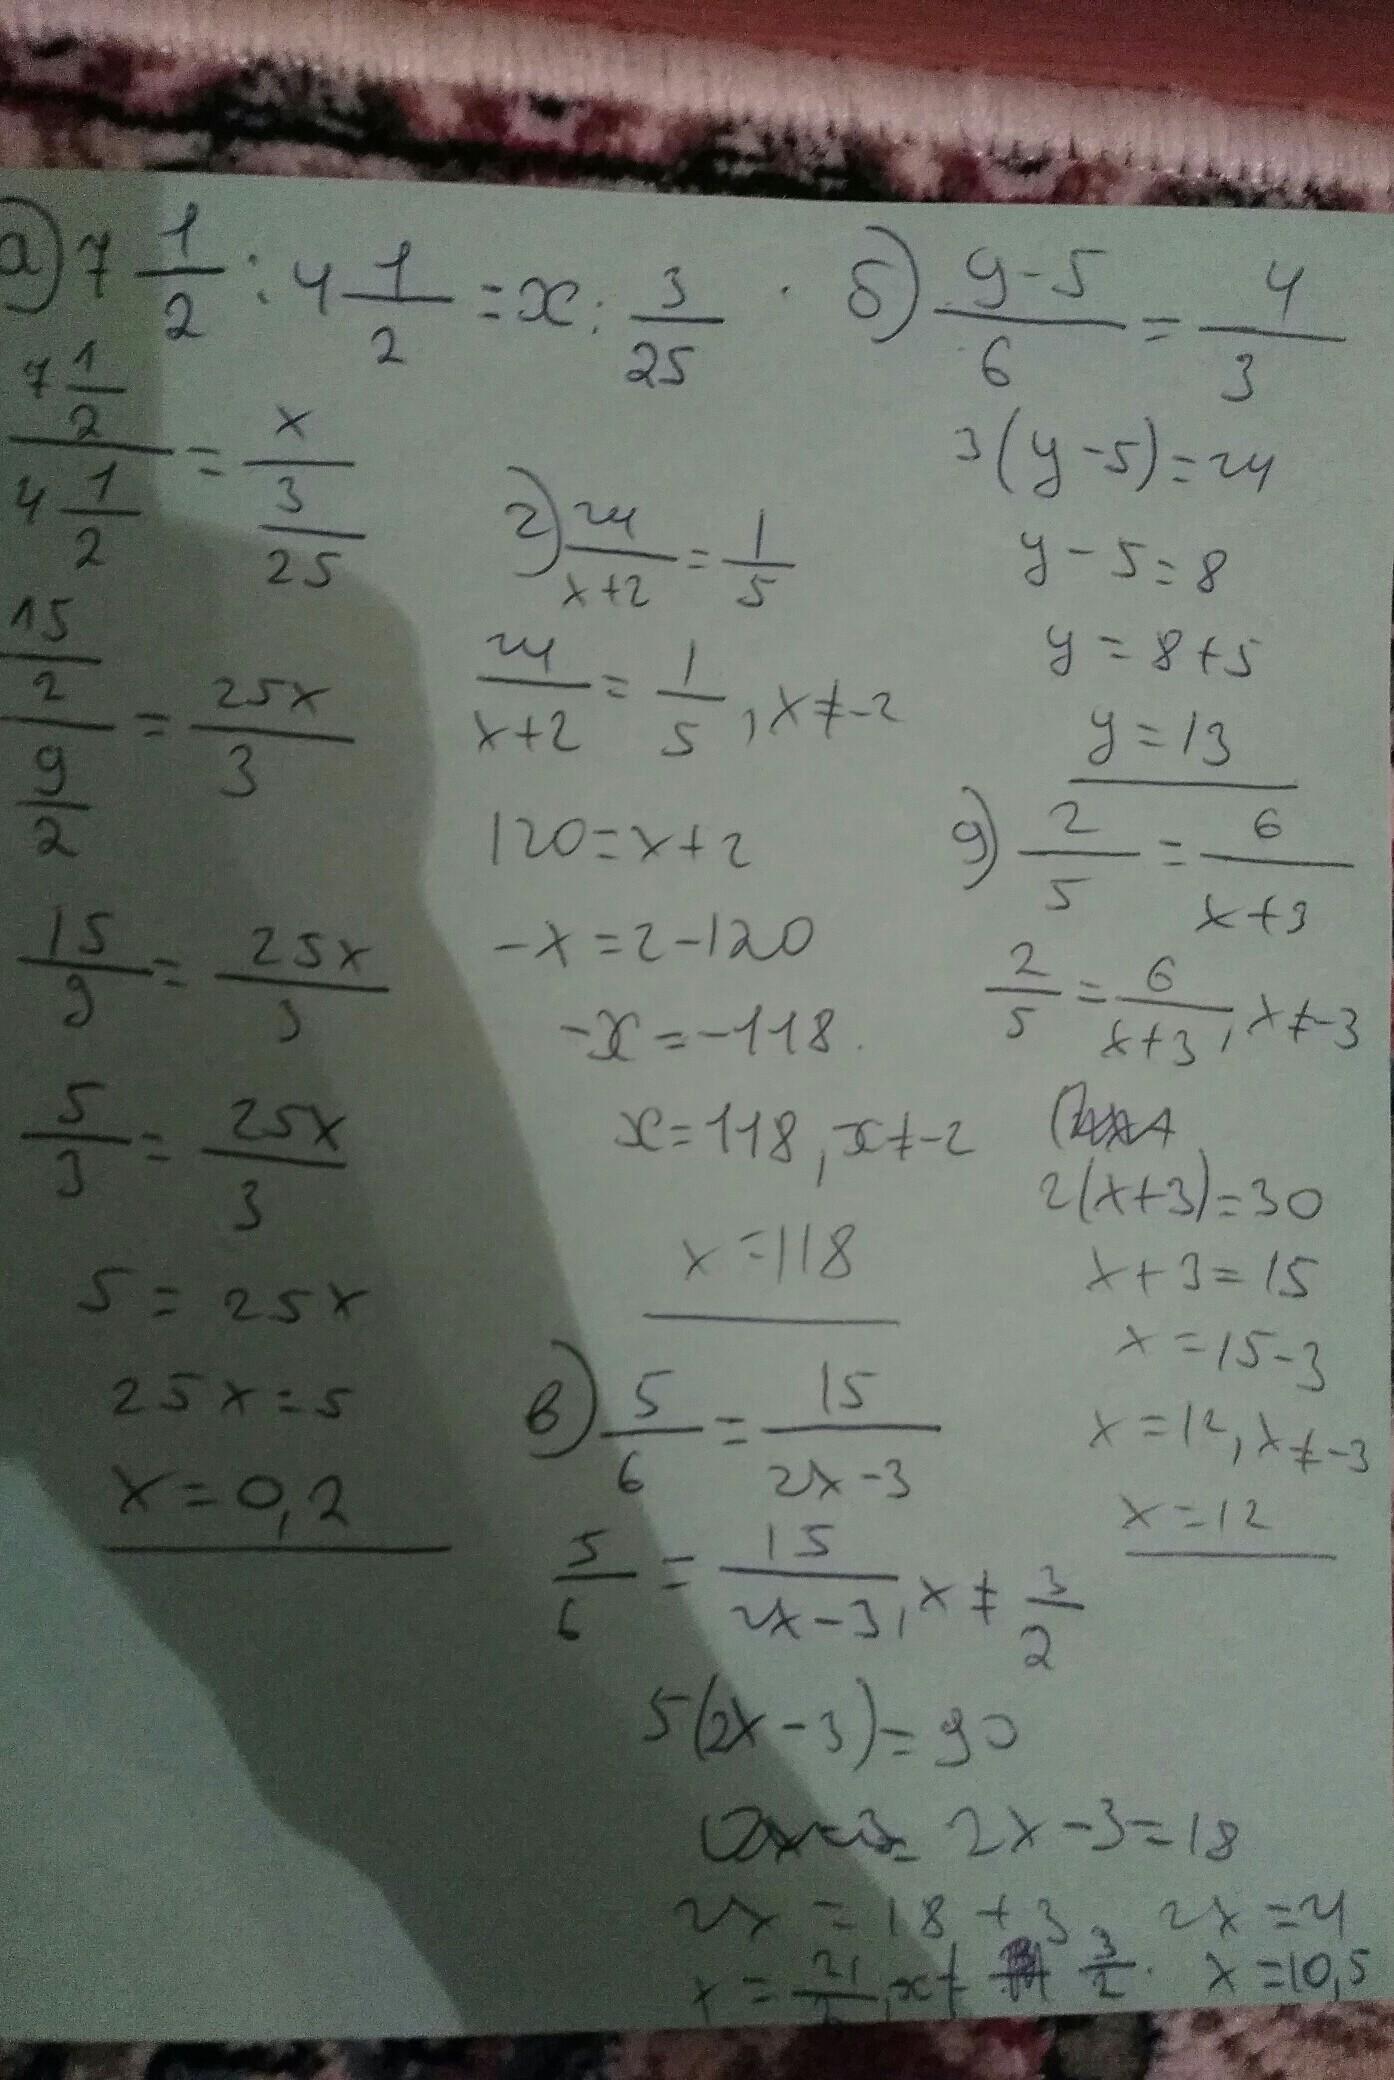 а) 7 1/2 : 4 1/2 = x : 3/25
(7 1/2)/(4 1/2) = x/(3/25)
(15/2)/(9/2) = 25x/3
15/9 = 25x/3
5/3 = 25x/3
5 = 25x
25x = 5
x = 0,2
б) (y-5)/6 = 4/3
3(y-5) = 24
y - 5 = 8
y = 8 + 5
y = 13
г) 24/(x+2) = 1/5
24/(x+2) = 1/5, x ≠ -2
120 = x + 2
-x = 2 - 120
-x = -118.
x = 118, x ≠ -2
x = 118
g) 2/5 = 6/(x+3)
2/5 = 6/(x+3), x ≠ -3
2(x+3) = 30
x + 3 = 15
x = 15 - 3
x = 12, x ≠ -3
x = 12
в) 5/6 = 15/(2x-3)
5/6 = 15/(2x-3), x ≠ 3/2
5(2x-3) = 90
2x - 3 = 18
2x = 18 + 3, 2x = 21
x = 21/2, x ≠ 3/2. x = 10,5